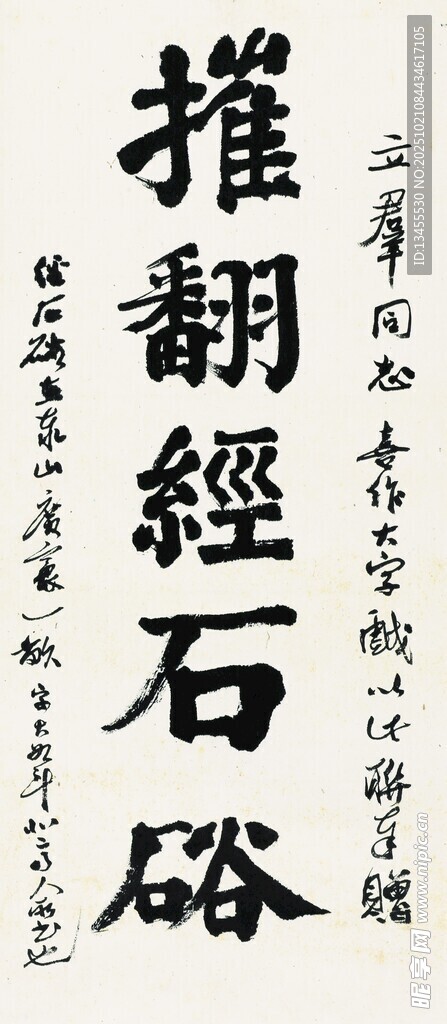 立羣同志喜作大字戲以此聯奉贈
摧翻經石硲
經石硲在泰山廣袤一畝字大如斗北齊人所書也
ID:13455530 NO:20251021084434617105
昵享网 www.nipic.cn